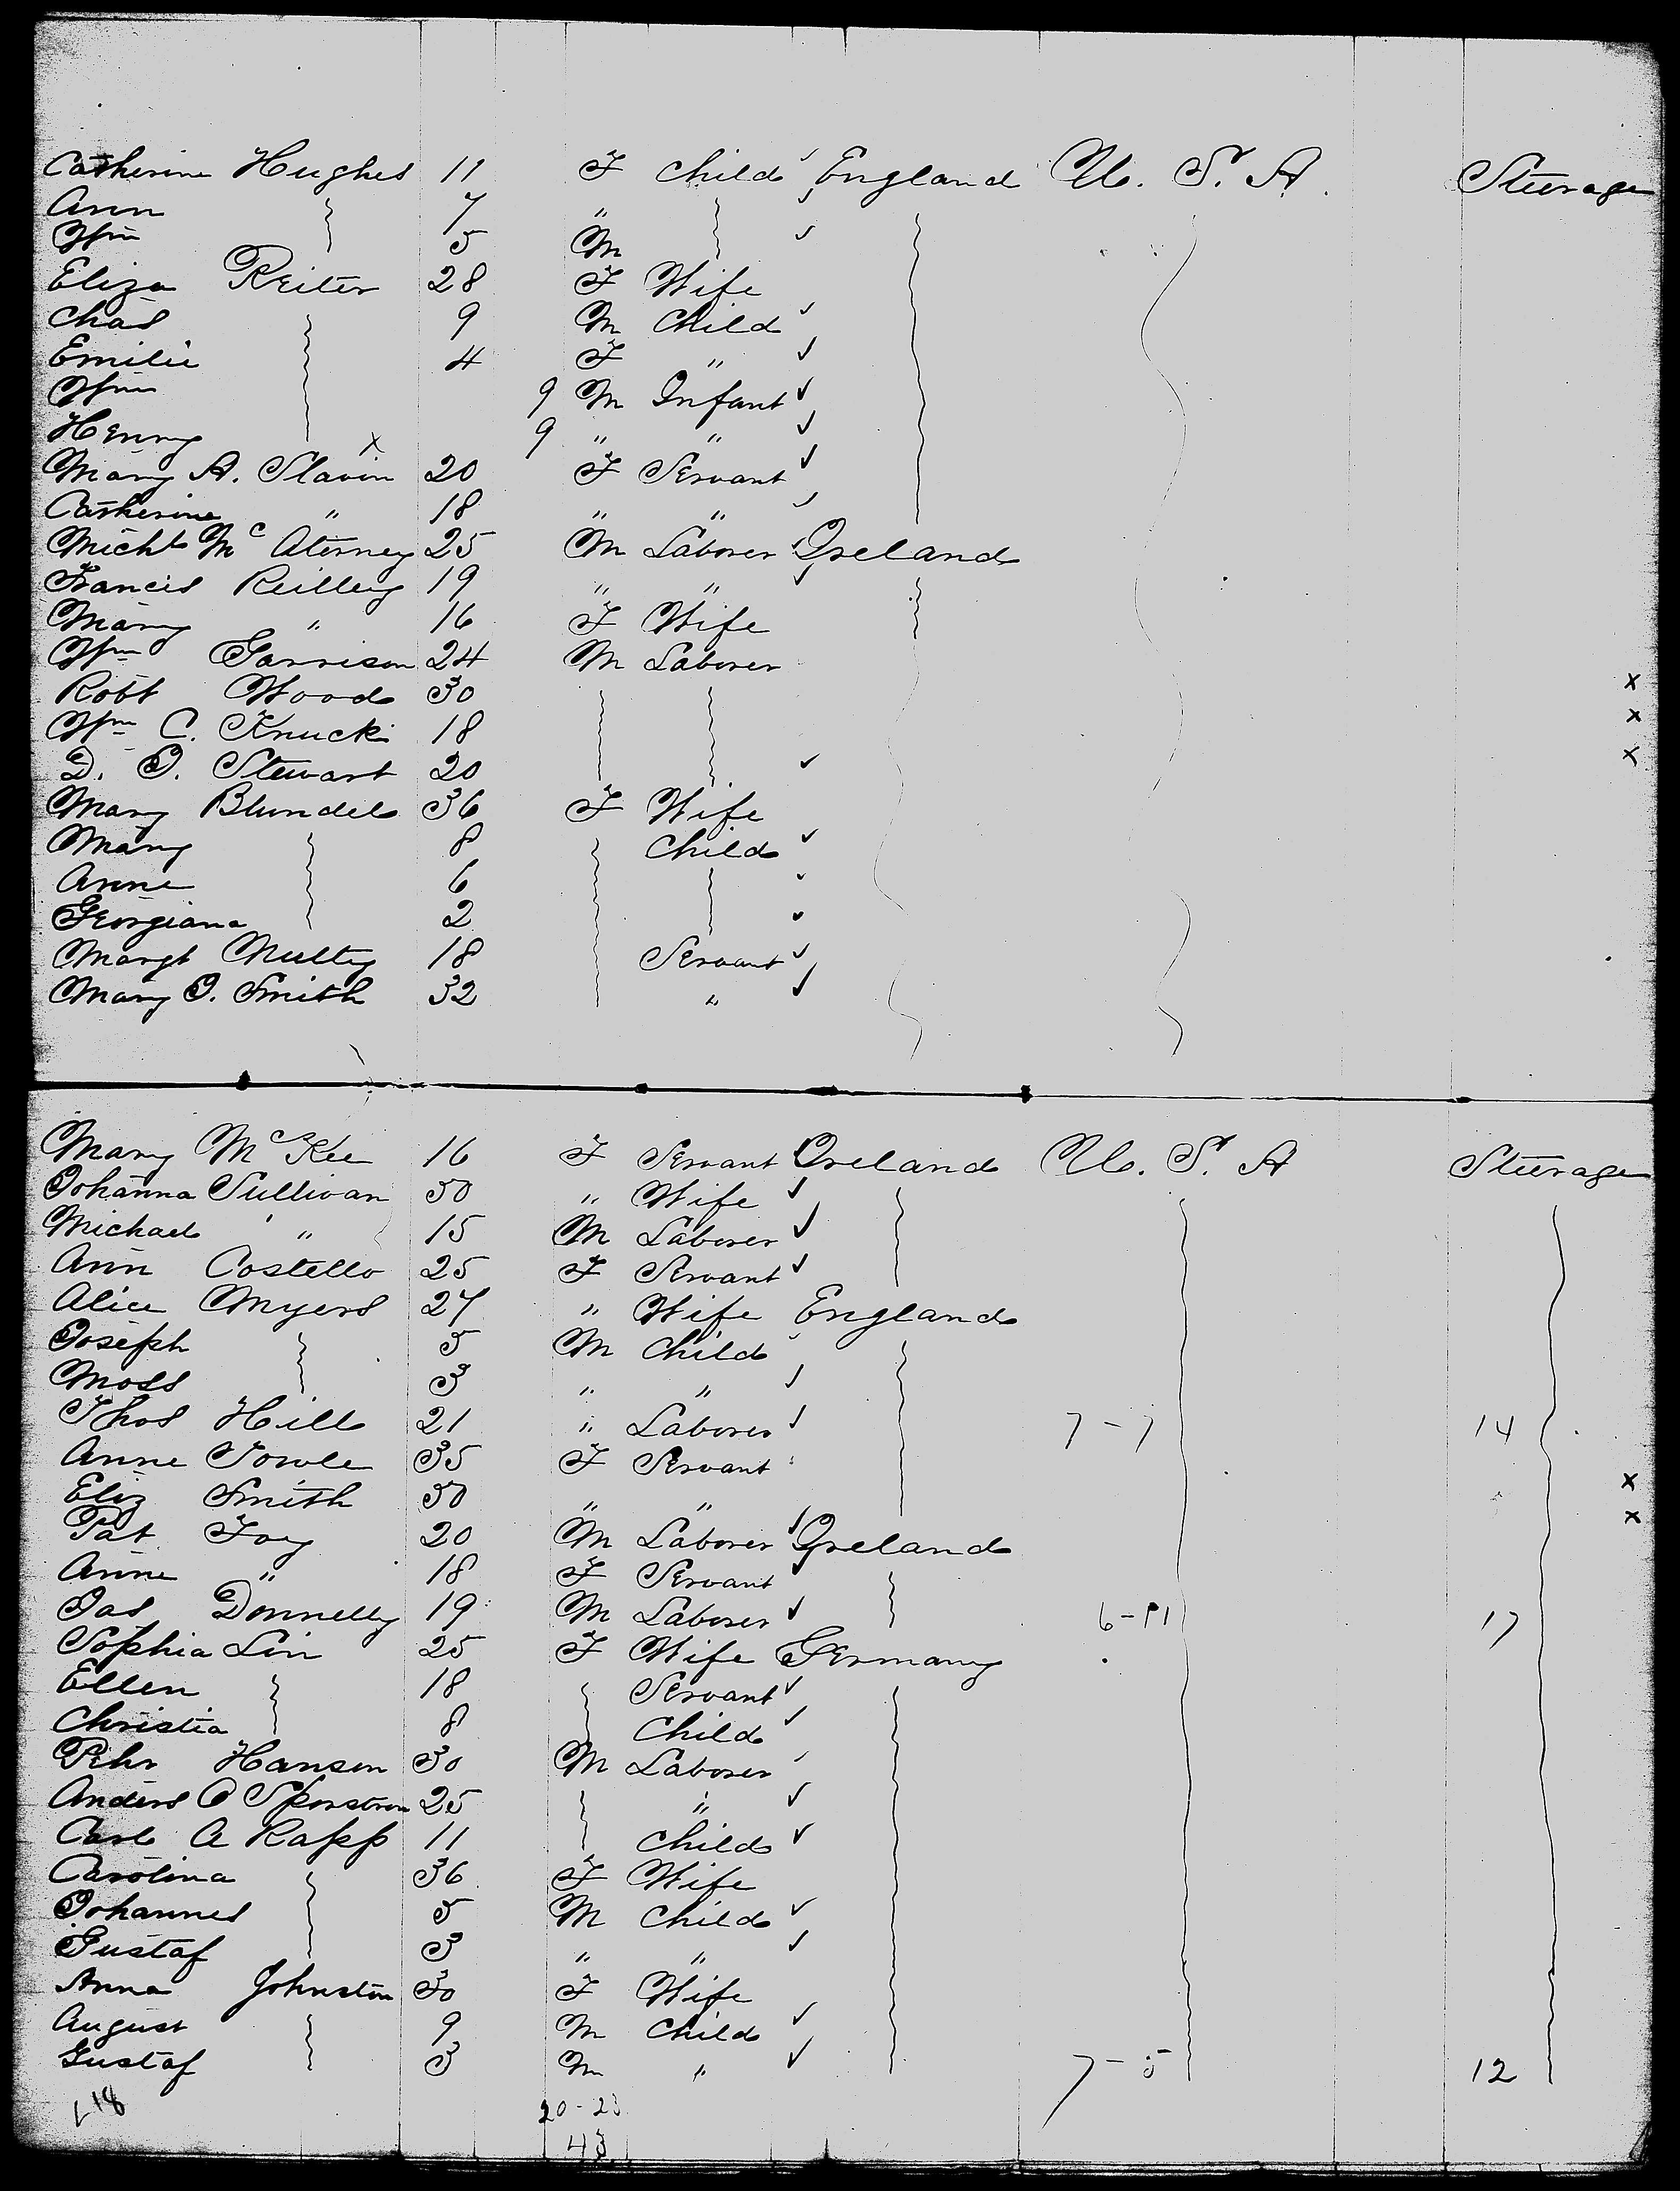 Catherine Hughes 11 F Child England U. S. A. Steerage
Ann 7 "
Wm 5 M
Eliza Reiter 28 F Wife
Chas 9 M Child
Emilie 4 F "
Wm 9 M Infant
Henry 9 " "
Mary A. Slavin 20 F Servant
Catherine " 18 " "
Michl Mc Aterney 25 M Laborer Ireland
Francis Reilley 19 " "
Mary " 16 F Wife
Wm Garrison 24 M Laborer
Robt Wood 30 x
Wm C. Knucki 18 x
D. J. Stewart 20 x
Mary Blundell 36 F Wife
Mary 8 Child
Anne 6
Georgiana 2
Margt Multy 18 Servant
Mary J. Smith 32 "
Mary McKee 16 F Servant Ireland U. S. A Steerage
Johanna Sullivan 50 " Wife
Michael " 15 M Laborer
Ann Costello 25 F Servant
Alice Myers 27 " Wife England
Joseph 5 M Child
Moss 3 " "
Thos Hill 21 " Laborer 7-7 14
Anne Towle 35 F Servant
Eliz Smith 50 " " x
Pat Foy 20 M Laborer Ireland x
Anne " 18 F Servant
Jas Donnelly 19 M Laborer 17
Sophia Lin 25 F Wife Germany
Ellen 18 Servant
Christia 8 Child
Pehr Hansen 30 M Laborer
Anders 25 "
Carl A Rapp 11 Child
Carolina 36 F Wife
Johannes 5 M Child
Gustaf 3 " "
Anna Johnston 30 F Wife
August 9 M Child
Gustaf 3 M " 7-5 12
20-23
43